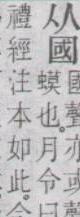 國聲亦或
从國
蟆也。月令曰
禮經注本如此。今